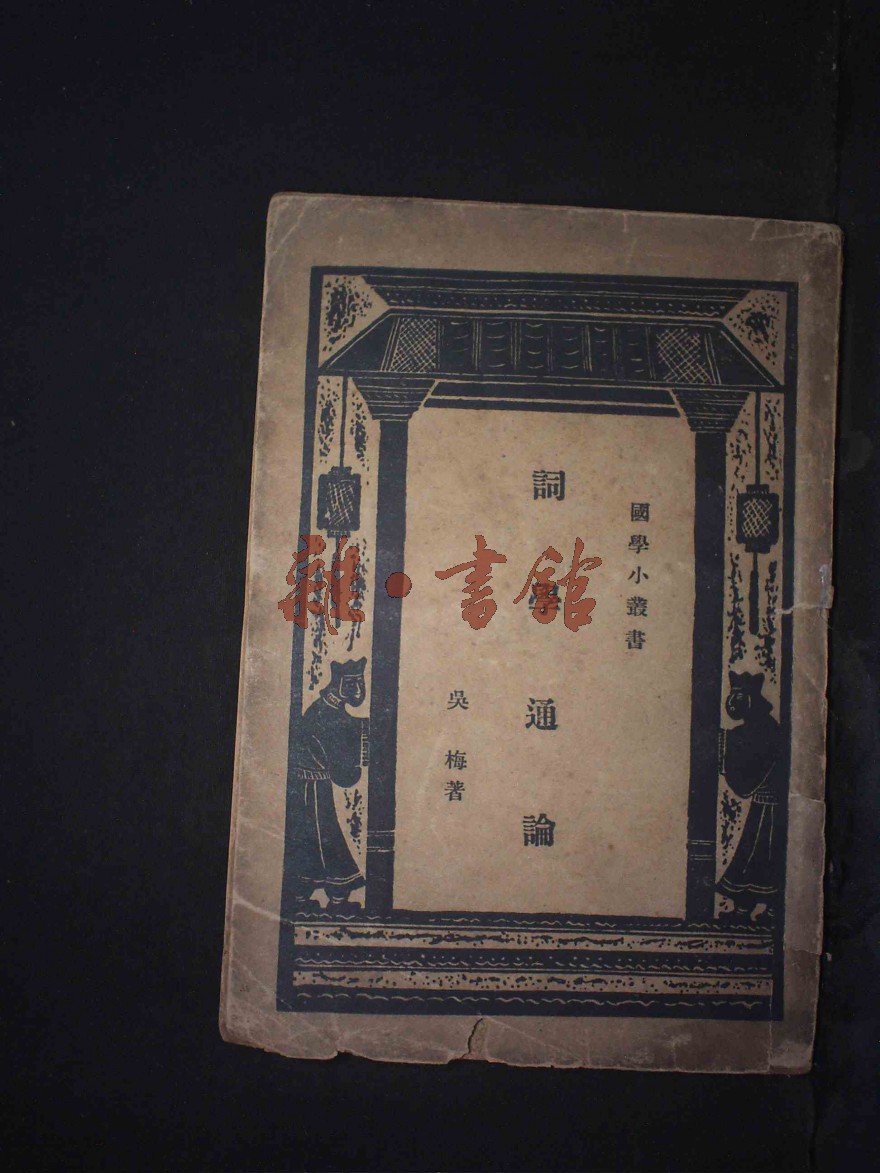 國學小叢書
詞學通論
吳梅著
雜·書館